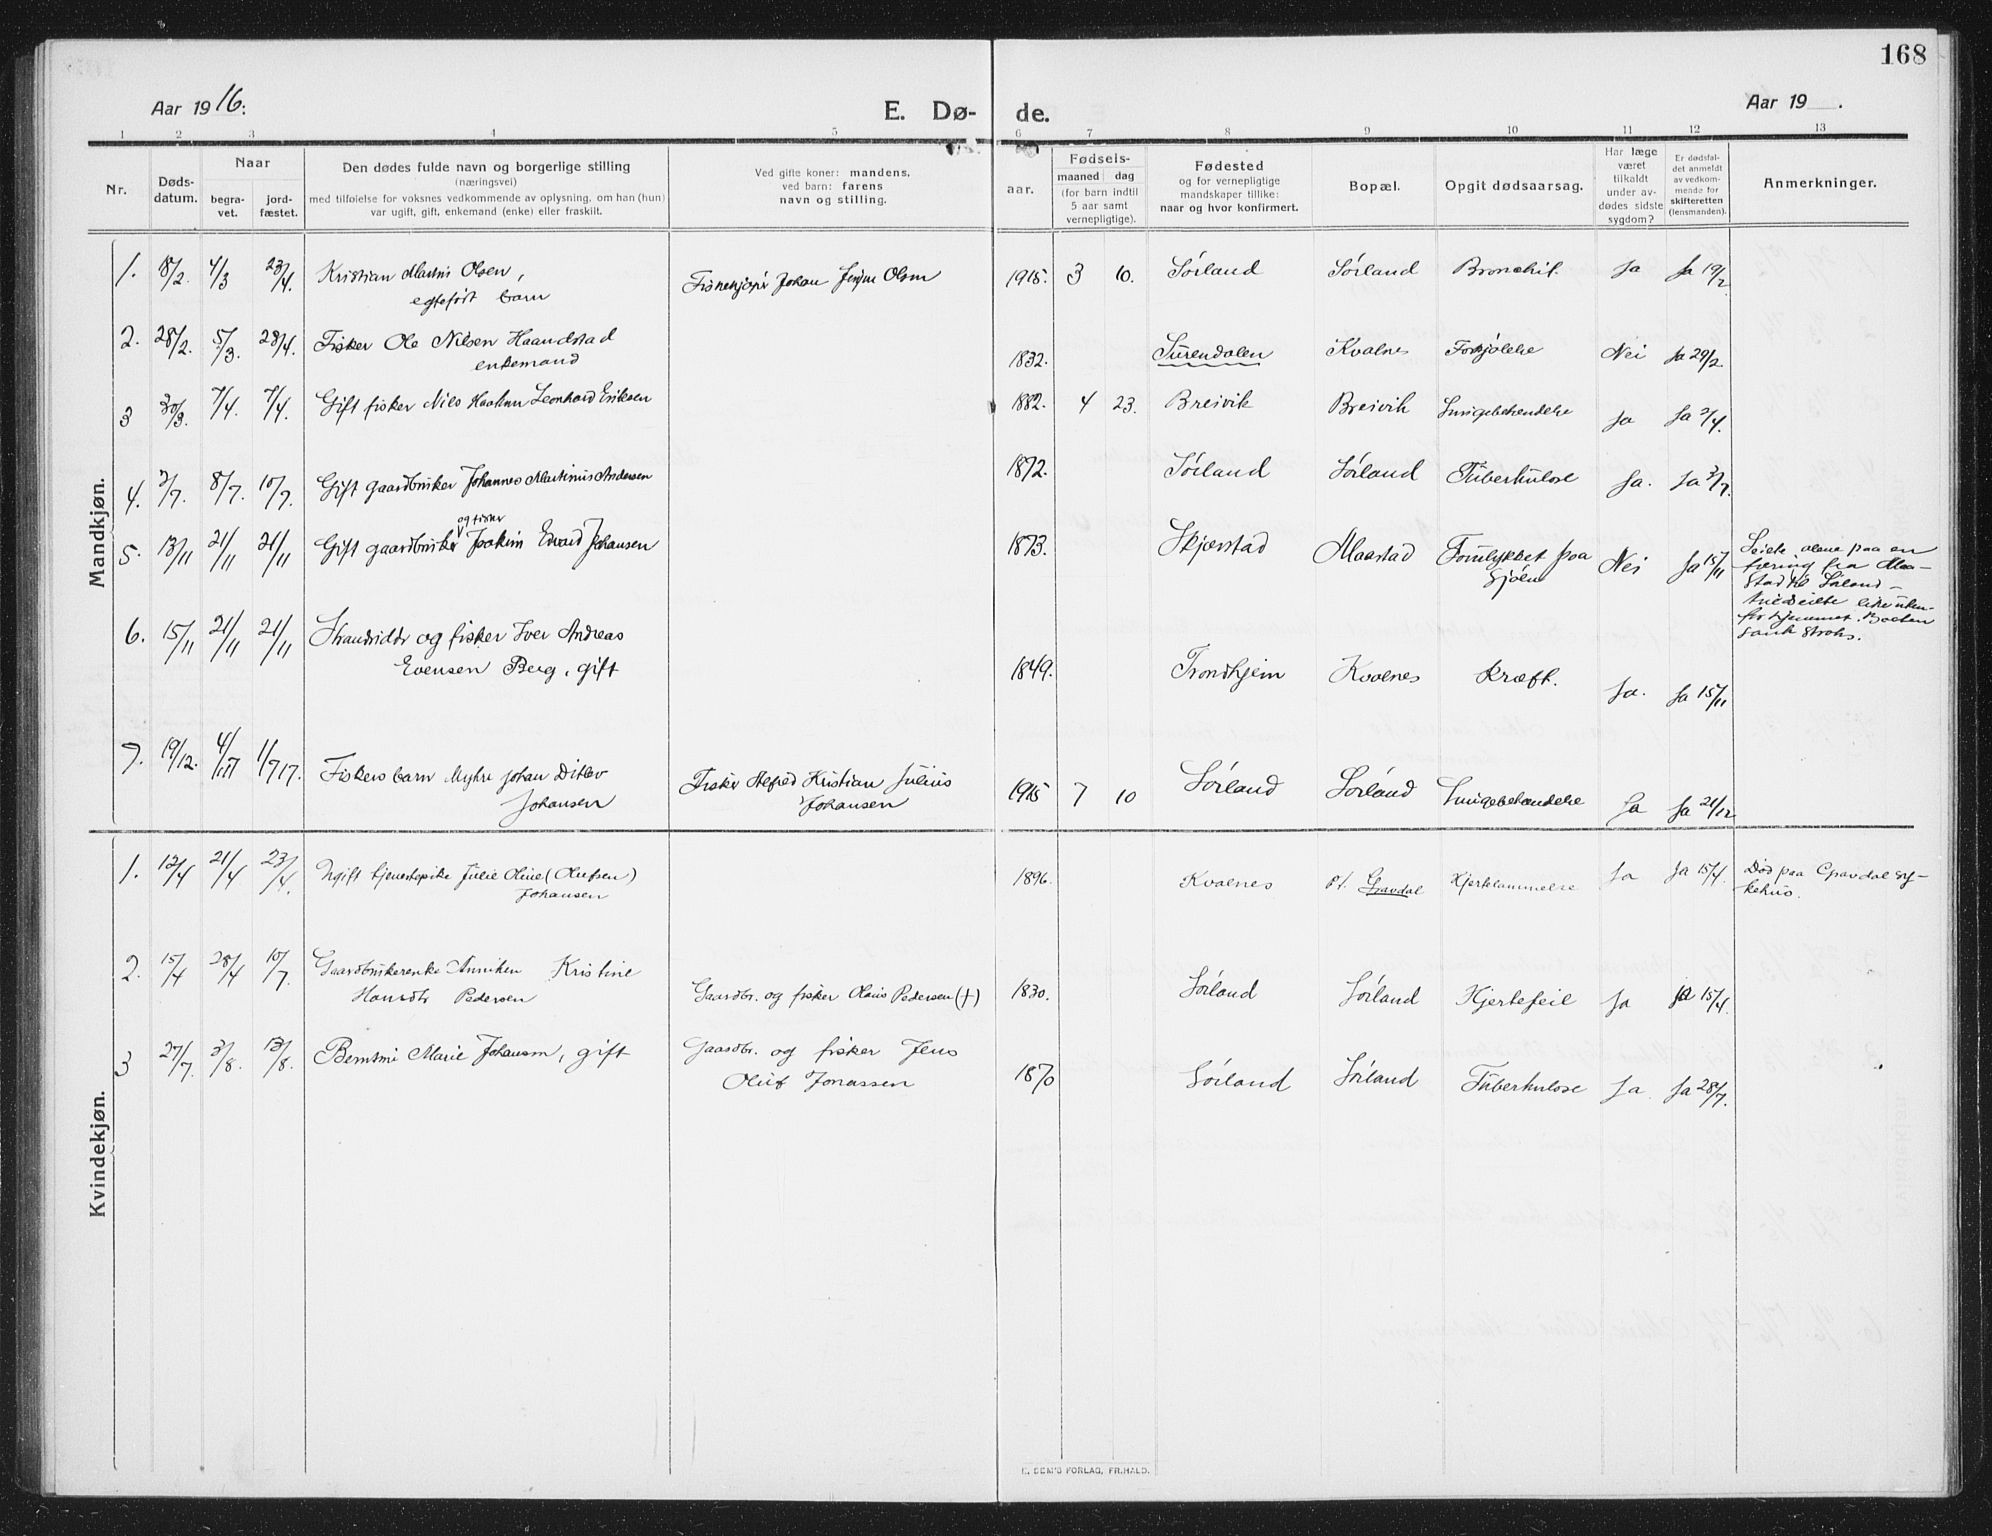 168
Aar 1916.
E. Dø-
de.
Aar 19 .
1 2 3 4 5 6 7 8 9 10 11 12 13
Nr.
Døds-
datum.
Naar
begra-
vet.
jord-
fæstet.
Den dødes fulde navn og borgerlige stilling
(næringsvei)
med tilføielse for voksnes vedkommende av oplysning, om han (hun)
var ugift, gift, enkemand (enke) eller fraskilt.
Ved gifte koner: mandens,
ved barn: farens
navn og stilling.
aar.
Fødsels-
maaned dag
(for barn indtil
5 aar samt
vernepligtige).
Fødested
og for vernepligtige
mandskaper tillike:
naar og hvor konfirmert.
Bopæl.
Opgit dødsaarsag.
Har læge
været
tilkaldt
under av-
dødes sidste
sygdom?
Er dødsfal-
det anmeldt
av vedkom-
mende for
skifteretten
(lensmanden).
Anmerkninger.
Mandkjøn.
1. 18/2. 4/3 23/4. Kristian Martin Olsen, Johan Olsen 1915. 3 10. Sörland Sörland Bronchit. Ja Ja 19/2
egtefödt barn
2. 28/2. 5/3. 28/4. Fisker Ole Nilsen Haandstad 1832. Surendalen Kvalnes Forkjölelse Nei Ja 29/2.
enkemand
3 30/3. 7/4. 7/4. Gift fisker Nils Haakon Leonhard Eriksen 1882. 4 23. Breivik Breivik Lungebetændelse Ja Ja 2/4.
4. 3/7. 8/7. 10/7. Gift gaardbruker Johannes Martinus Andersen 1872. Sörland Sörland Tuberkulose Ja. Ja 3/7.
og fisker
5. 13/11 21/11 21/11 Gift gaardbruker Joakim Edvard Johansen 1873. Skjerstad Maastad Forulykket paa Nei Ja 15/11
sjöen
Seilte alene paa en
færing fra Maa-
stad til Sörland -
kuldseilte like uten-
for hjemmet. Baaten
sank straks.
6. 15/11 21/11 21/11 Strandsidder og fisker Iver Andreas
Evensen Berg, gift 1849. Trondhjem Kvalnes Kræft. Ja. Ja 15/11
7. 19/12. 4/1 17 1/7 17. Fiskers barn Myhre Johan Ditlev Fisker Alfred Kristian Julius 1915 7 10 Sörland Sörland Lungebetændelse Ja Ja 21/12
Johansen Johansen
Kvindekjøn.
1. 12/4 21/4 23/4. Ugift tjenestepike Julie Oline (Olufsen) 1896. Kvalnes pt. Gravdal Hjertelammelse Ja Ja 15/4. Död paa Gravdal sy-
Johansen kehus.
2. 15/4 28/4 10/7. Gaardbrukerenke Anniken Kristine
Hansdtr Pedersen Gaardbr. og fisker Olaus Pedersen (+) 1830. Sörland Sörland Hjertefeil Ja Ja 15/4.
3 27/7. 3/8. 13/8. Berntine Marie Johansen, gift Gaardbr. og fisker Jens
Oluf Jonassen 1870 Sörland Sörland Tuberkulose Ja. Ja 28/7.
E. SEM'S FORLAG, FR.HALD.